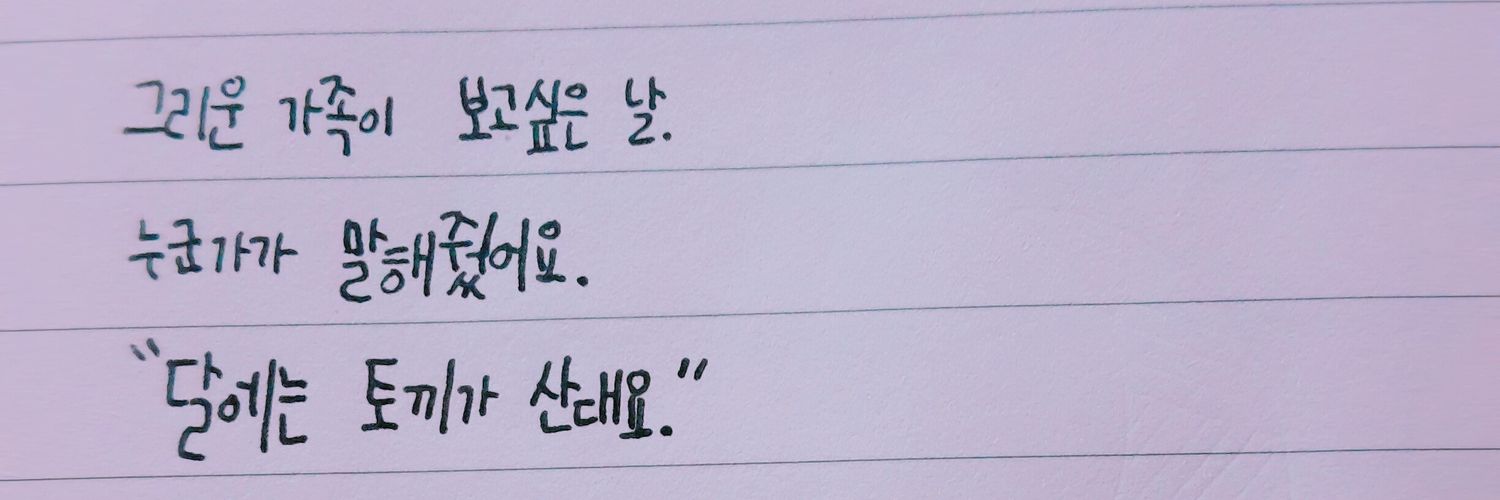 그리운 가족이 보고싶은 날.
누군가가 말해줬어요.
"달에는 토끼가 산대요."